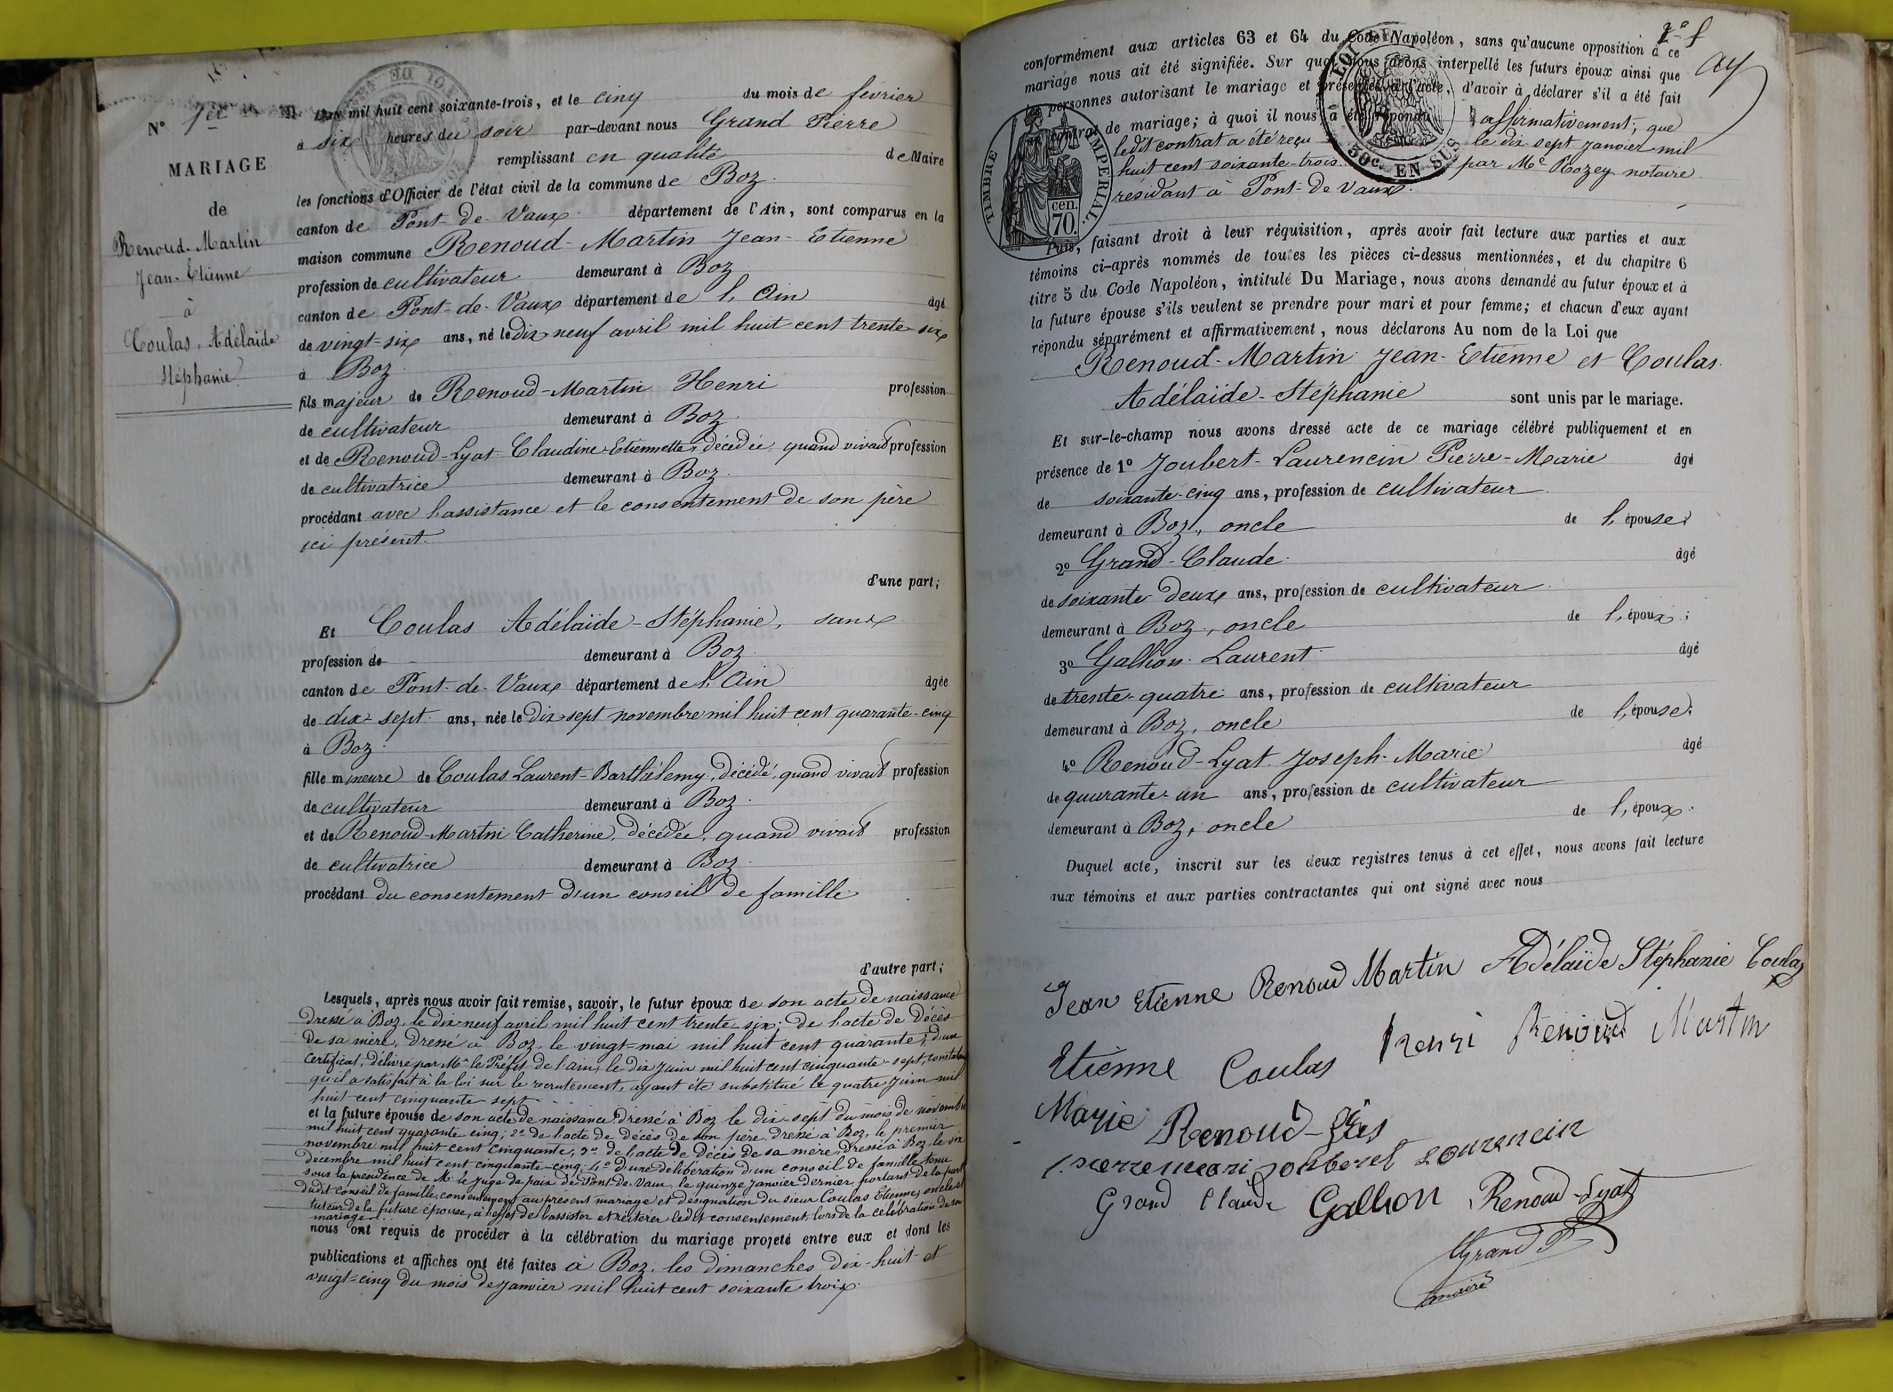 N° 7
MARIAGE
de
Renoud-Martin
Jean-Etienne
à
Coulas, Adélaïde
Stéphanie
L'an mil huit cent soixante-trois, et le cinq du mois de février
à six heures du soir par-devant nous Grand Pierre
remplissant en qualité de Maire
les fonctions d'Officier de l'état civil de la commune de Boz
canton de Pont-de-Vaux département de l'Ain, sont comparus en la
maison commune Renoud-Martin Jean-Etienne
profession de cultivateur demeurant à Boz
canton de Pont-de-Vaux département de l'Ain âgé
de vingt-six ans, né le dix neuf avril mil huit cent trente six
à Boz
fils majeur de Renoud-Martin Henri profession
de cultivateur demeurant à Boz
et de Renoud-Lyat Claudine Etiennette, décédée, quand vivait profession
de cultivatrice demeurant à Boz
procédant avec l'assistance et le consentement de son père
ici présent.
d'une part;
Et Coulas Adélaïde-Stéphanie, sans
profession de demeurant à Boz
canton de Pont-de-Vaux département de l'Ain âgée
de dix-sept ans, née le dix sept novembre mil huit cent quarante-cinq
à Boz
fille mineure de Coulas Laurent-Barthélemy, décédé, quand vivait profession
de cultivateur demeurant à Boz
et de Renoud-Martin Catherine, décédée, quand vivait profession
de cultivatrice demeurant à Boz
procédant du consentement d'un conseil de famille
d'autre part;
Lesquels, après nous avoir fait remise, savoir, le futur époux de son acte de naissance
dressé à Boz le dix neuf avril mil huit cent trente six; de l'acte de décès
de sa mère, dressé à Boz le vingt-mai mil huit cent quarante; d'un
certificat, délivré par Mr le Préfet de l'ain, le dix juin mil huit cent cinquante-sept, constatant
qu'il a satisfait à la loi sur le recrutement, ayant été substitué le quatre juin mil
huit cent cinquante sept
et la future épouse de son acte de naissance dressé à Boz le dix sept du mois de novembre
mil huit cent quarante cinq; 2° de l'acte de décès de son père dressé à Boz, le premier
novembre mil huit cent cinquante; 3° de l'acte de décès de sa mère dressé à Boz le six
décembre mil huit cent cinquante-cinq; 4° d'une délibération d'un conseil de famille tenu
sous la présidence de Mr le Juge de paix de Pont-de-Vaux le quinze janvier dernier portant de la part
dudit conseil de famille, consentement au présent mariage et désignation du sieur Coulas Etienne, oncle et
tuteur de la future épouse, à l'effet de l'assister et réitérer ledit consentement lors de la célébration de son
mariage
nous ont requis de procéder à la célébration du mariage projeté entre eux et dont les
publications et affiches ont été faites à Boz, les dimanches dix-huit et
vingt-cinq du mois de janvier mil huit cent soixante trois.
conformément aux articles 63 et 64 du Code Napoléon, sans qu'aucune opposition à ce
mariage nous ait été signifiée. Sur quoi nous avons interpellé les futurs époux ainsi que
les personnes autorisant le mariage et présentes à l'acte, d'avoir à déclarer s'il a été fait
contrat de mariage; à quoi il nous a été répondu affirmativement, que
ledit contrat a été reçu le dix sept janvier mil
huit cent soixante-trois par Me Rozey notaire
résidant à Pont-de-Vaux.
TIMBRE IMPERIAL
cen.
70.
50c. EN SUS
Puis, faisant droit à leur réquisition, après avoir fait lecture aux parties et aux
témoins ci-après nommés de toutes les pièces ci-dessus mentionnées, et du chapitre 6
titre 5 du Code Napoléon, intitulé Du Mariage, nous avons demandé au futur époux et à
la future épouse s'ils veulent se prendre pour mari et pour femme; et chacun d'eux ayant
répondu séparément et affirmativement, nous déclarons Au nom de la Loi que
Renoud-Martin Jean-Etienne et Coulas
Adélaïde-Stéphanie sont unis par le mariage.
Et sur-le-champ nous avons dressé acte de ce mariage célébré publiquement et en
présence de 1° Joubert-Laurencin Pierre-Marie âgé
de soixante-cinq ans, profession de cultivateur
demeurant à Boz, oncle de l'épouse;
2° Grand-Claude âgé
de soixante deux ans, profession de cultivateur
demeurant à Boz, oncle de l'époux;
3° Gallion Laurent âgé
de trente-quatre ans, profession de cultivateur
demeurant à Boz, oncle de l'épouse;
4° Renoud-Lyat Joseph-Marie âgé
de quarante-un ans, profession de cultivateur
demeurant à Boz, oncle de l'époux.
Duquel acte, inscrit sur les deux registres tenus à cet effet, nous avons fait lecture
aux témoins et aux parties contractantes qui ont signé avec nous
Jean Etienne Renoud Martin Adélaïde Stéphanie Coulas
Etienne Coulas Henri Renoud Martin
Marie Renoud-
pierre mari joubert lourencin
Grand Claude Gallion Renoud-Lyat
Grand P
maire